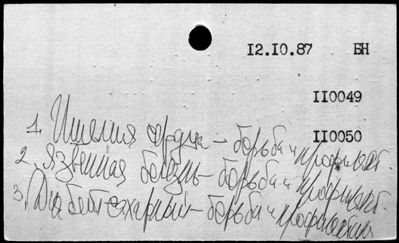 12.10.87 БН
II0049
II0050
1. Ишемия сердца – борьба и профилакт.
2. Язвенная болезнь – борьба и профилакт.
3. Диабет сахарный – борьба и профилактика